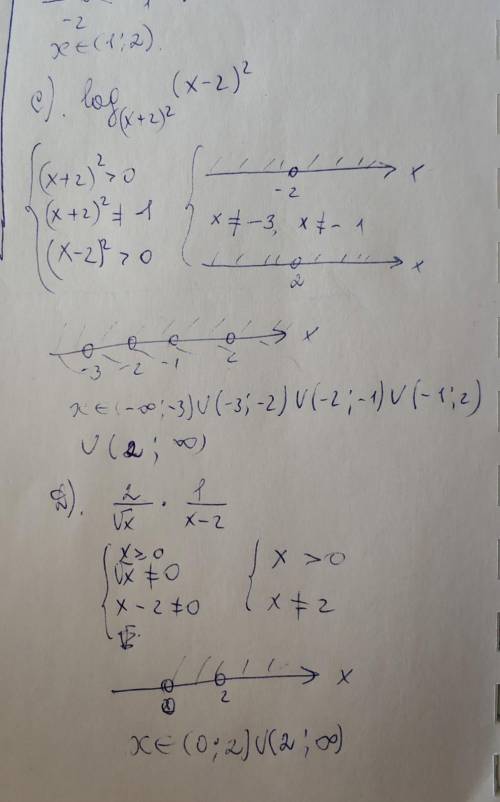 -2
x∈(1;2).
c). log_{(x+2)^2} (x-2)^2
(x+2)^2 > 0
(x+2)^2 ≠ 1
(x-2)^2 > 0
-2 x
x ≠ -3, x ≠ -1
2 x
-3 -2 -1 2 x
x∈(-∞;-3)∪(-3;-2)∪(-2;-1)∪(-1;2)
∪(2;∞)
D). 2/√x · 1/(x-2)
x ≥ 0
√x ≠ 0
x - 2 ≠ 0
x > 0
x ≠ 2
2 x
x∈(0;2)∪(2;∞)